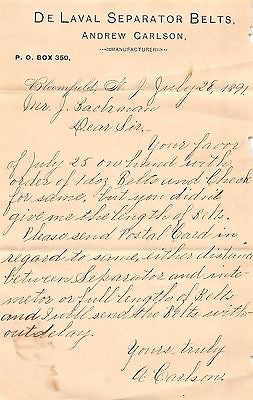 DE LAVAL SEPARATOR BELTS,
ANDREW CARLSON,
MANUFACTURER
P. O. BOX 350,
Bloomfield, N. J. July 28, 1891
Mr. J. Bachman
Dear Sir,
Your favor
of July 25 on hand with
order of 1 doz Belts and Check
for same, but you didnt
give me the length of Belts.
Please send Postal Card in
regard to same, either distance
between Separator and inte-
metor or full length of Belts
and I will send the Belts with-
out delay.
Yours truly
A Carlson